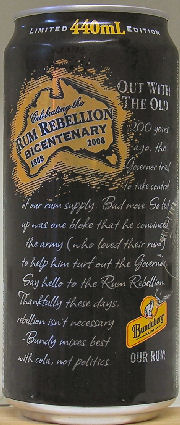 LIMITED 440mL EDITION
Celebrating the
RUM REBELLION
BICENTENARY
1808 2008
OUT WITH
THE OLD
200 years
ago, the
Governor tried
to take control
of our rum supply. Bad move. So fed
up was one bloke that he convinced
the army (who loved their rum)
to help him turf out the Governor.
Say hello to the Rum Rebellion.
Thankfully these days,
rebellion isn't necessary
-Bundy mixes best
with cola, not politics.
Bundaberg
OUR RUM